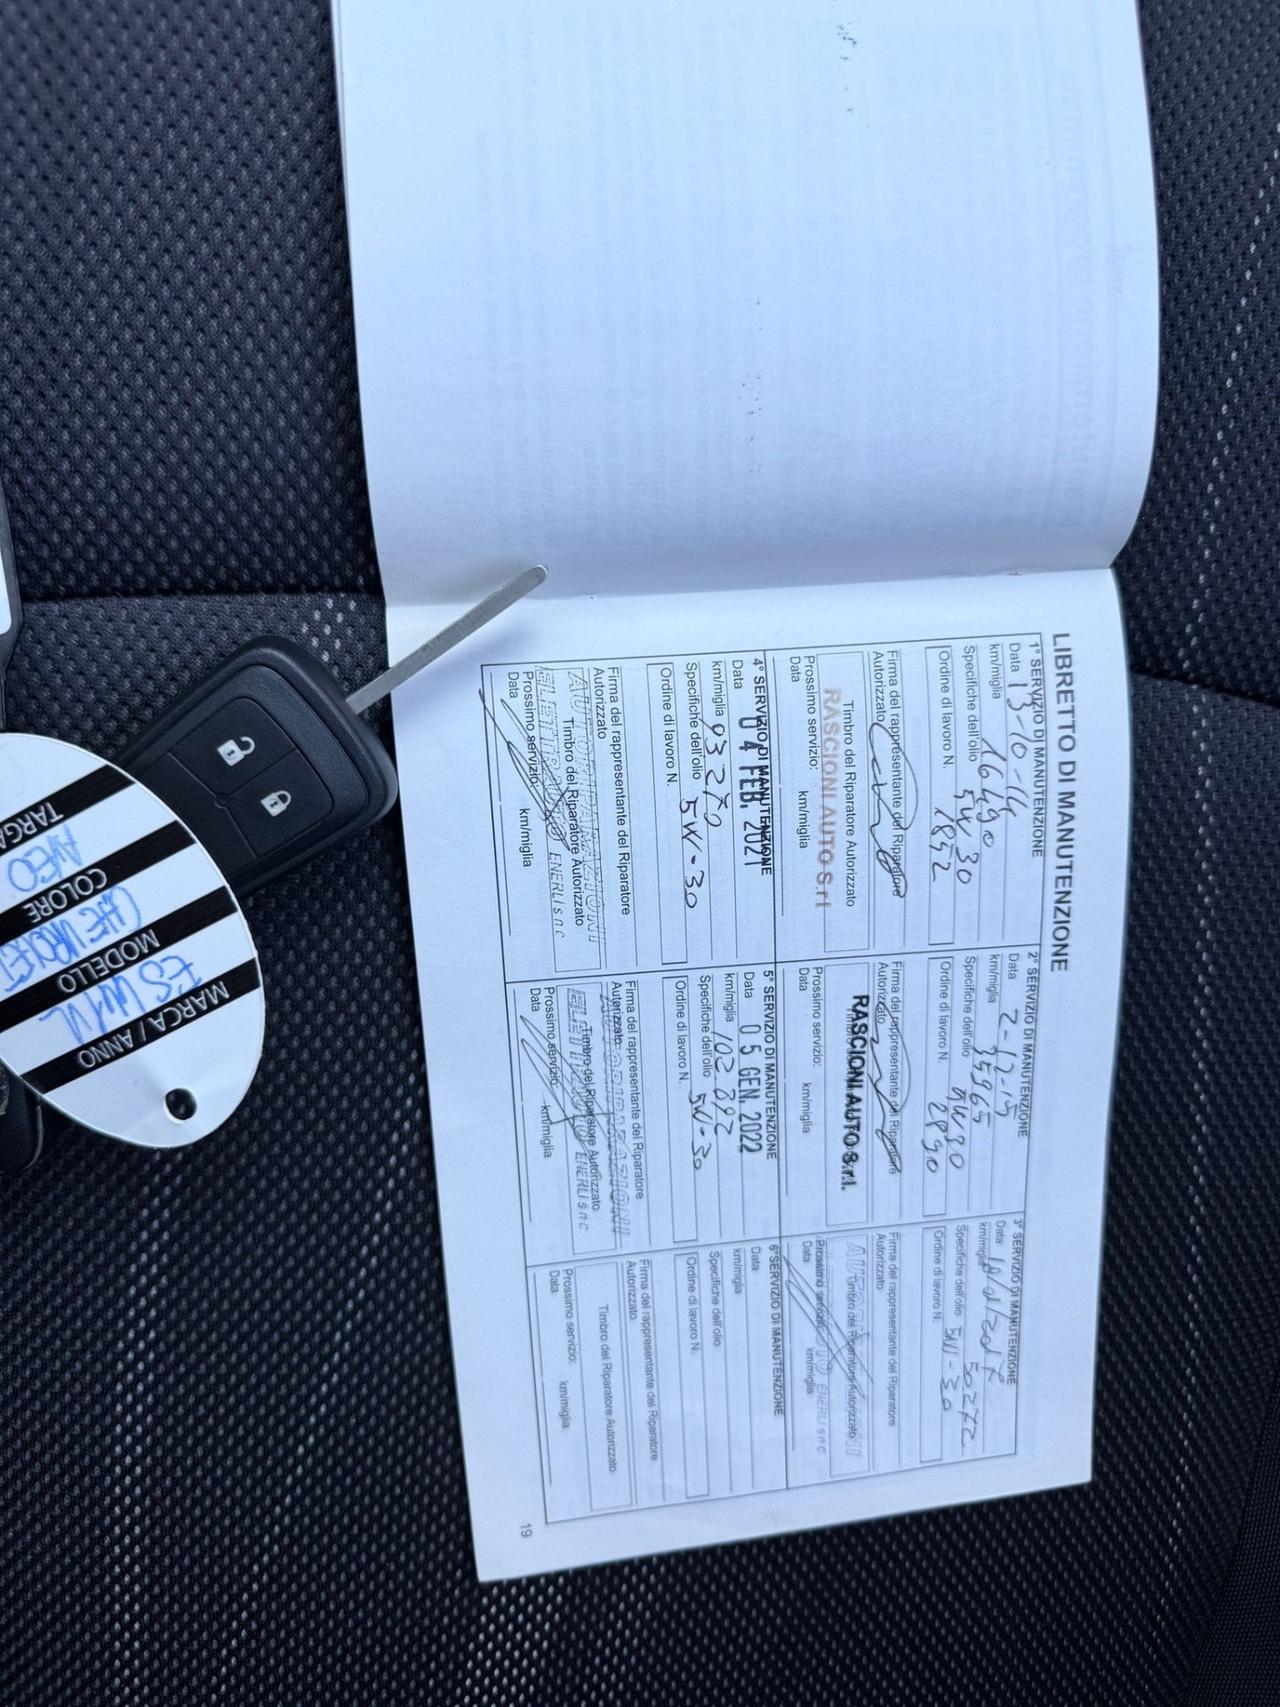 LIBRETTO DI MANUTENZIONE
1° SERVIZIO DI MANUTENZIONE
Data 13-10-14
km/miglia 16490
Specifiche dell'olio 5W30
Ordine di lavoro N. 1852
Firma del rappresentante del Riparatore
Autorizzato
Timbro del Riparatore Autorizzato
RASCIONI AUTO S.r.l
Prossimo servizio: km/miglia
Data
2° SERVIZIO DI MANUTENZIONE
Data 2-12-15
km/miglia 35965
Specifiche dell'olio 5W30
Ordine di lavoro N. 2890
Firma del rappresentante del Riparatore
Autorizzato
RASCIONI AUTO S.r.l.
Prossimo servizio: km/miglia
Data
3° SERVIZIO DI MANUTENZIONE
Data
km/miglia 50272
Specifiche dell'olio 5W-30
Ordine di lavoro N.
Firma del rappresentante del Riparatore
Autorizzato
Timbro del Riparatore Autorizzato
ENERLI snc
Prossimo servizio: km/miglia
Data
4° SERVIZIO DI MANUTENZIONE
Data 04 FEB. 2021
km/miglia 93270
Specifiche dell'olio 5W-30
Ordine di lavoro N.
Firma del rappresentante del Riparatore
Autorizzato
AUTORIPARAZIONI
Timbro del Riparatore Autorizzato
ELETTRAUTO ENERLI snc
Prossimo servizio: km/miglia
Data
5° SERVIZIO DI MANUTENZIONE
Data 05 GEN. 2022
km/miglia 102.892
Specifiche dell'olio 5W-30
Ordine di lavoro N.
Firma del rappresentante del Riparatore
Autorizzato
AUTORIPARAZIONI
Timbro del Riparatore Autorizzato
ELETTRAUTO ENERLI snc
Prossimo servizio: km/miglia
Data
6° SERVIZIO DI MANUTENZIONE
Data
km/miglia
Specifiche dell'olio
Ordine di lavoro N.
Firma del rappresentante del Riparatore
Autorizzato
Timbro del Riparatore Autorizzato
Prossimo servizio: km/miglia
Data
19
MARCA / ANNO
MODELLO
CHEVROLET
COLORE
AVEO
TARGA